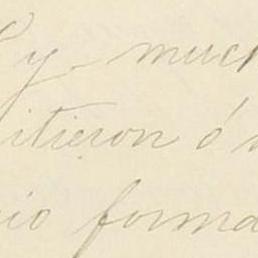 y much
itieron ó
io forma